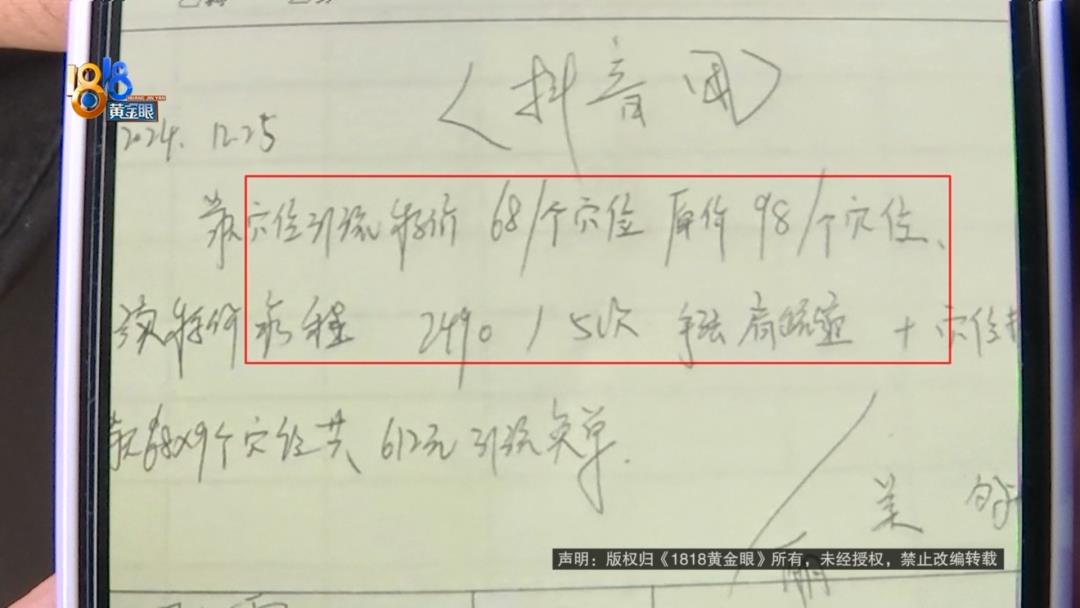 1818
黄金眼
〈抖音团〉
2024. 12.25
穴位引流特价 68/个穴位 原价 98/个穴位、
特价疗程 2490 / 50次 手法肩疏通 + 穴位
68×9个穴位共 612元 引流免单.
美
声明：版权归《1818黄金眼》所有，未经授权，禁止改编转载